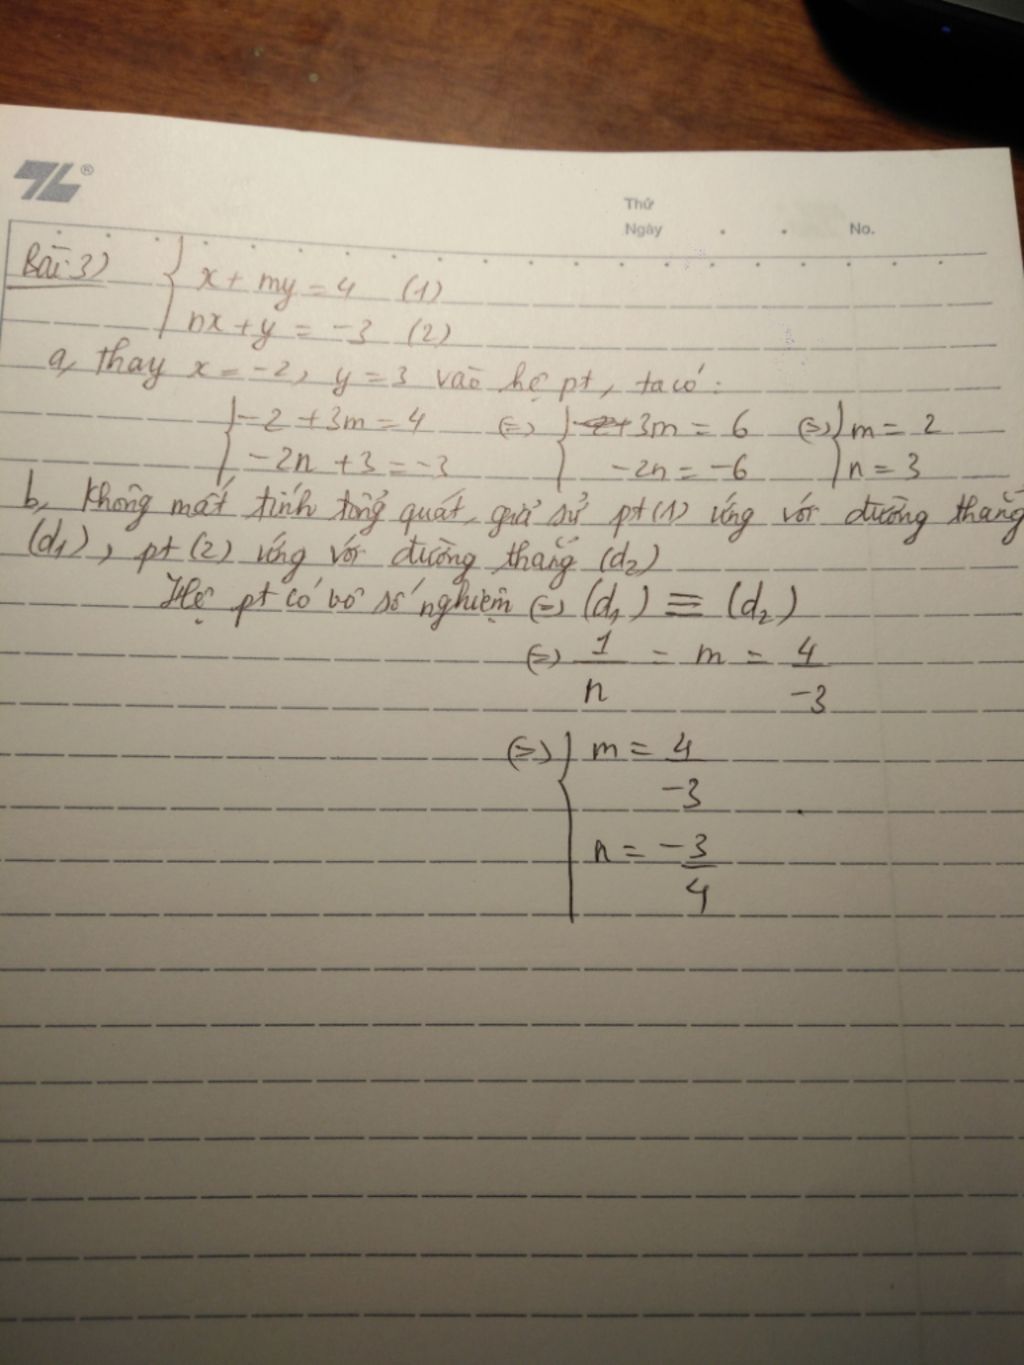 TL®
Thứ
Ngày . . No.
Bài 3) { x + my = 4 (1)
nx + y = -3 (2)
a, thay x = -2, y = 3 vào hệ pt, ta có:
{ -2 + 3m = 4 (=) { 3m = 6 (=) { m = 2
-2n + 3 = -3 -2n = -6 n = 3
b, Không mất tính tổng quát, giả sử pt (1) ứng với đường thẳng
(d1), pt (2) ứng với đường thẳng (d2)
Hệ pt có vô số nghiệm (=) (d1) ≡ (d2)
(=) 1/n = m = 4/-3
(=) { m = 4/-3
n = -3/4